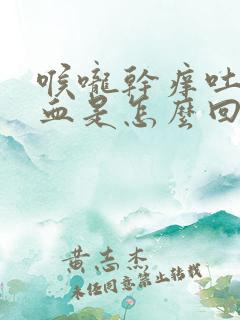 喉嚨幹癢吐
血是怎麼回
黃志杰
未经同意禁止转载